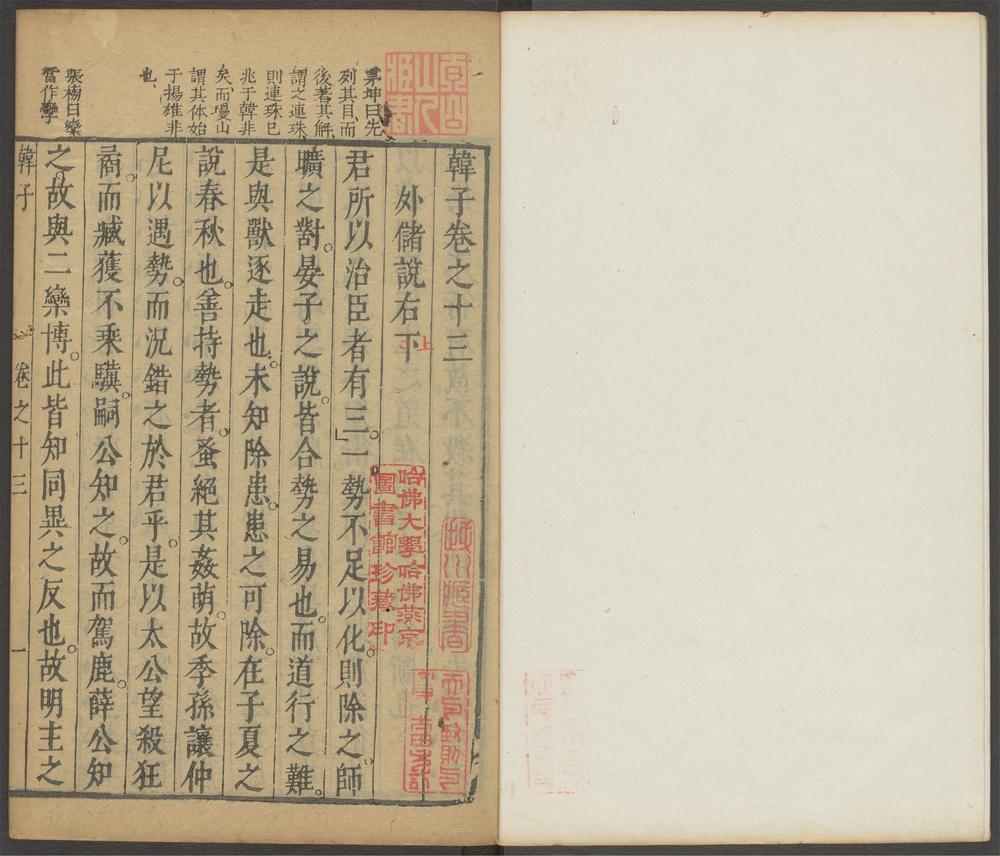 茅坤曰先
列其目而
後著其解
謂之連珠
則連珠已
兆于韓非
矣而瓊山
謂其体始
于揚雄非
也
張榜曰欒
當作孿
韓子卷之十三
外儲說右下
上
君所以治臣者有三。一勢不足以化。則除之。師
曠之對。晏子之說。皆合勢之易也。而道行之難。
是與獸逐走也。未知除患。患之可除。在子夏之
說春秋也。善持勢者。蚤絕其姦萌。故季孫讓仲
尼以遇勢。而況錯之於君乎。是以太公望殺狂
矞。而臧獲不乘驥。嗣公知之。故而駕鹿。薛公知
之。故與二欒博。此皆知同異之反也。故明主之
韓子
卷之十三
一
哈佛大學哈佛燕京
圖書館珍藏印